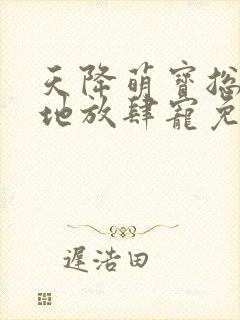 天降萌寶总
地放肆寵免
遲浩田